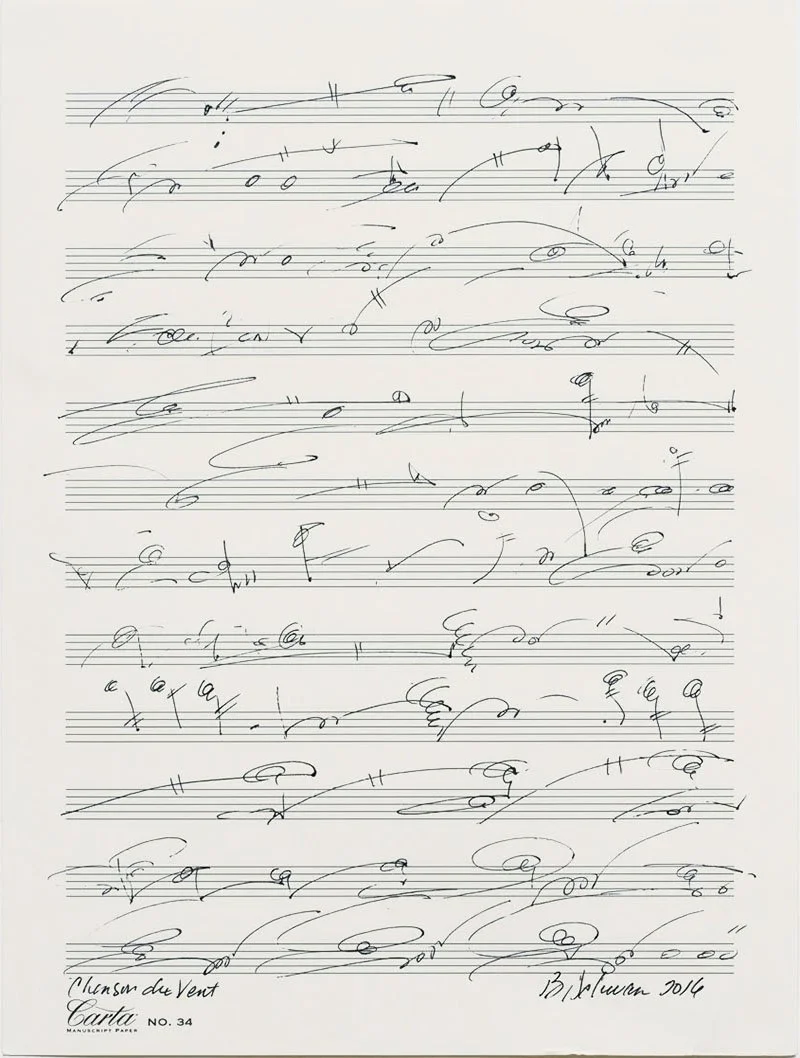 Chanson du Vent
2016
Carta NO. 34
MANUSCRIPT PAPER